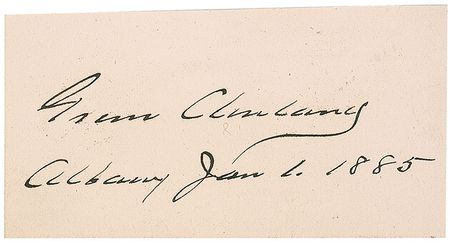 Grover Cleveland
Albany Jan 1. 1885